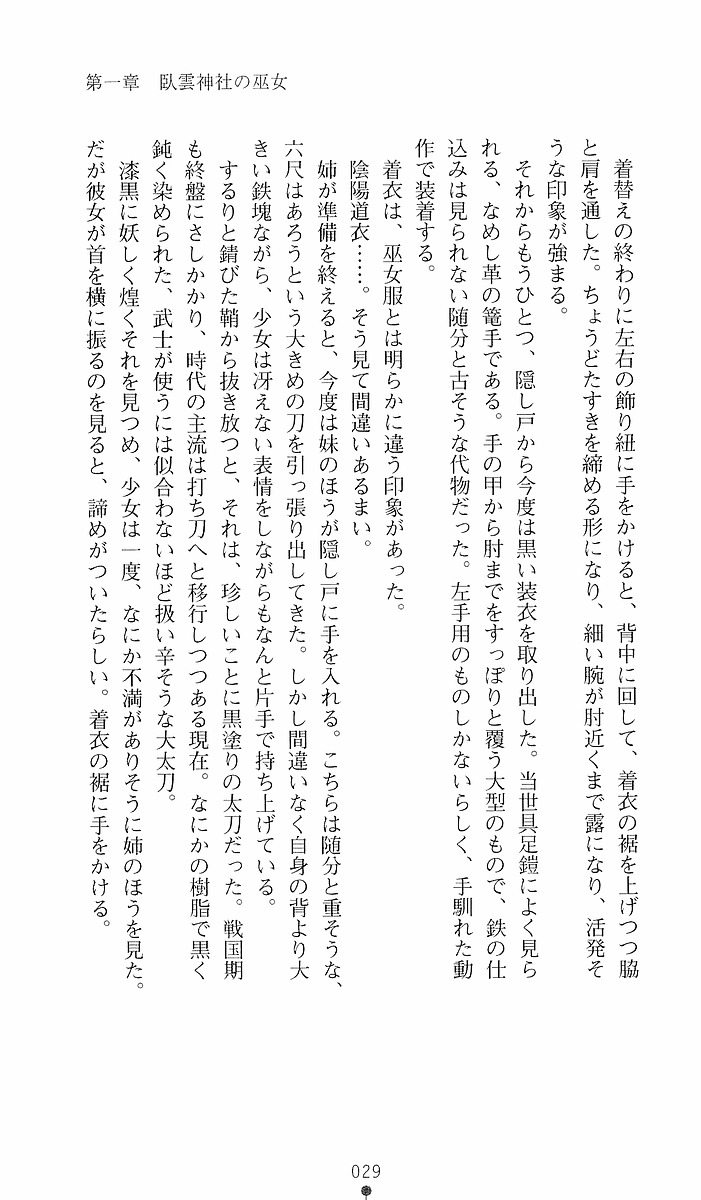 第一章　臥雲神社の巫女
　着替えの終わりに左右の飾り紐に手をかけると、背中に回して、着衣の裾を上げつつ脇
と肩を通した。ちょうどたすきを締める形になり、細い腕が肘近くまで露になり、活発そ
うな印象が強まる。
　それからもうひとつ、隠し戸から今度は黒い装衣を取り出した。当世具足鎧によく見ら
れる、なめし革の篭手である。手の甲から肘までをすっぽりと覆う大型のもので、鉄の仕
込みは見られない随分と古そうな代物だった。左手用のものしかないらしく、手馴れた動
作で装着する。
　着衣は、巫女服とは明らかに違う印象があった。
　陰陽道衣……。そう見て間違いあるまい。
　姉が準備を終えると、今度は妹のほうが隠し戸に手を入れる。こちらは随分と重そうな、
六尺はあろうという大きめの刀を引っ張り出してきた。しかし間違いなく自身の背より大
きい鉄塊ながら、少女は冴えない表情をしながらもなんと片手で持ち上げている。
　するりと錆びた鞘から抜き放つと、それは、珍しいことに黒塗りの太刀だった。戦国期
も終盤にさしかかり、時代の主流は打ち刀へと移行しつつある現在。なにかの樹脂で黒く
鈍く染められた、武士が使うには似合わないほど扱い辛そうな大太刀。
　漆黒に妖しく煌くそれを見つめ、少女は一度、なにか不満がありそうに姉のほうを見た。
だが彼女が首を横に振るのを見ると、諦めがついたらしい。着衣の裾に手をかける。
029